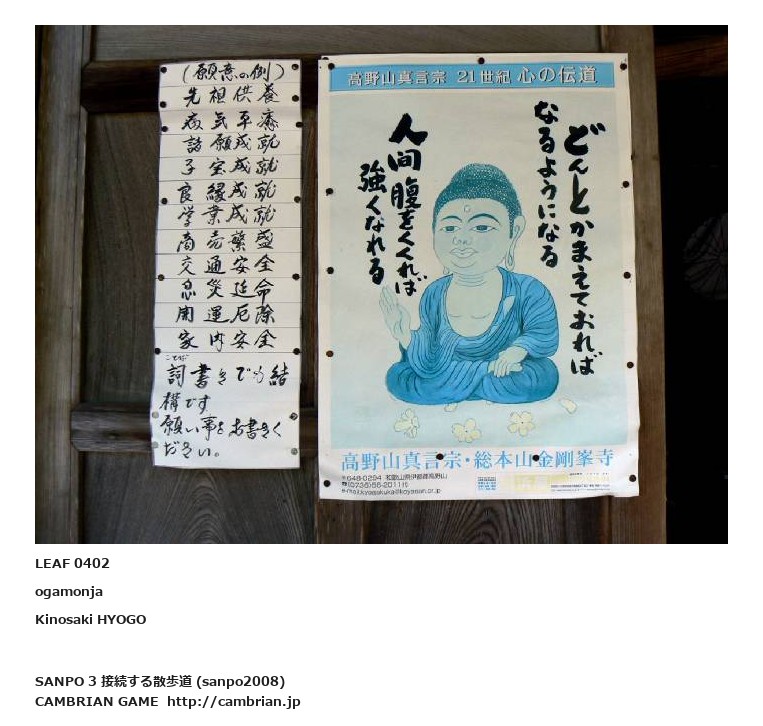 (願意の例)
先祖供養
病気平癒
諸願成就
子宝成就
良縁成就
学業成就
商売繁盛
交通安全
息災延命
開運厄除
家内安全
ことば
詞書きでも結
構です
願い事をお書きく
ださい。
高野山真言宗 21世紀 心の伝道
どんとかまえておれば
なるようになる
人間腹をくくれば
強くなれる
高野山真言宗・総本山金剛峯寺
〒648-0294 和歌山県伊都郡高野山
(0736)56-2011
LEAF 0402
ogamonja
Kinosaki HYOGO
SANPO 3 接続する散歩道 (sanpo2008)
CAMBRIAN GAME http://cambrian.jp